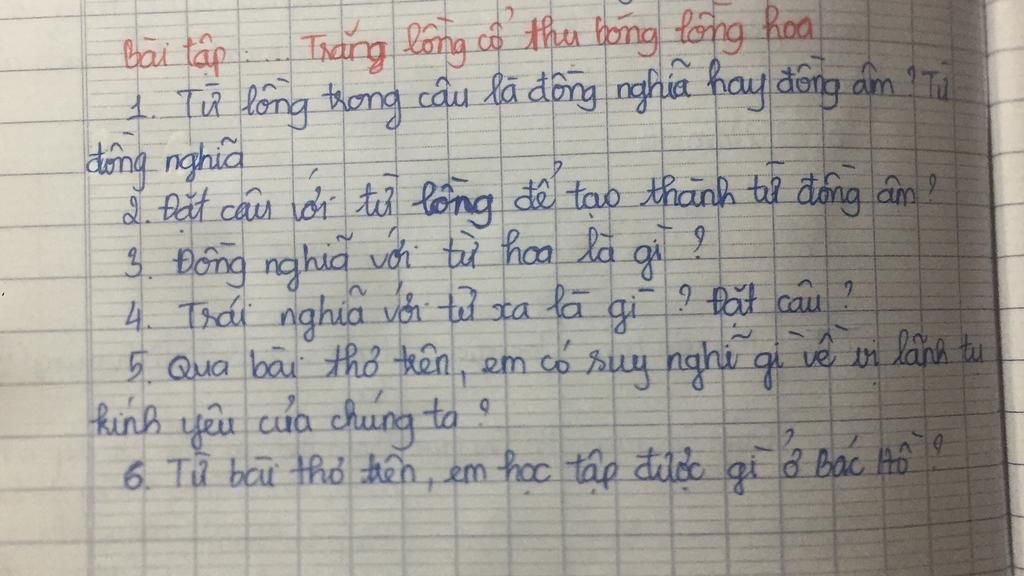 Bài tập ..... Trăng lồng cổ thụ bóng lồng hoa
1. Từ lồng trong câu là đồng nghĩa hay đồng âm? Từ
đồng nghĩa
2. Đặt câu với từ lồng để tạo thành từ đồng âm?
3. Đồng nghĩa với từ hoa là gì?
4. Trái nghĩa với từ xa là gì? Đặt câu?
5. Qua bài thơ trên, em có suy nghĩ gì về vị lãnh tụ
kính yêu của chúng ta?
6. Từ bài thơ trên, em học tập được gì ở Bác Hồ?